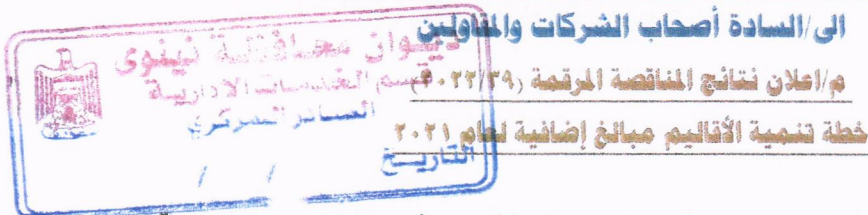 الى/السادة أصحاب الشركات والمقاولين
م/اعلان نتائج المناقصة المرقمة (٢٠٢٢/٣٩)
خطة تنمية الأقاليم مبالغ إضافية لعام ٢٠٢١
ديوان محافظة نينوى
قسم الخدمات الادارية
الصادر المركزي
التاريخ / /